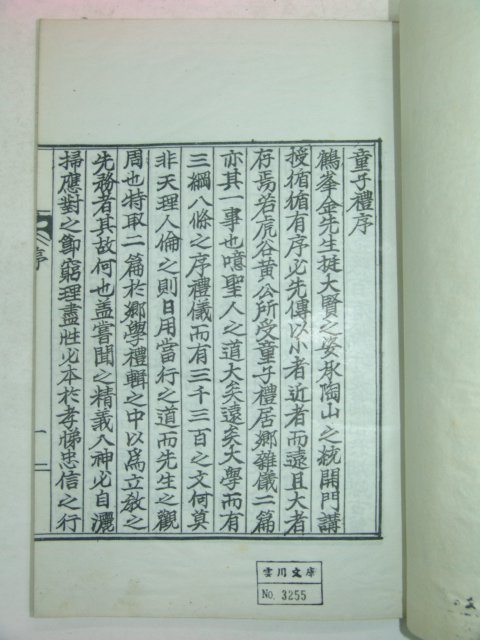 童子禮序
鶴峯金先生挺大賢之姿承陶山之統開門講
授循循有序必先傳以小者近者而遠且大者
存焉若虎谷黃公所受童子禮居鄕雜儀二篇
亦其一事也噫聖人之道大矣遠矣大學而有
三綱八條之序禮儀而有三千三百之文何莫
非天理人倫之則日用當行之道而先生之觀
周也特取二篇於鄕學禮輯之中以爲立敎之
先務者其故何也盖嘗聞之精義入神必自灑
掃應對之節窮理盡性必本於孝悌忠信之行
序
雲川文庫
No. 3255